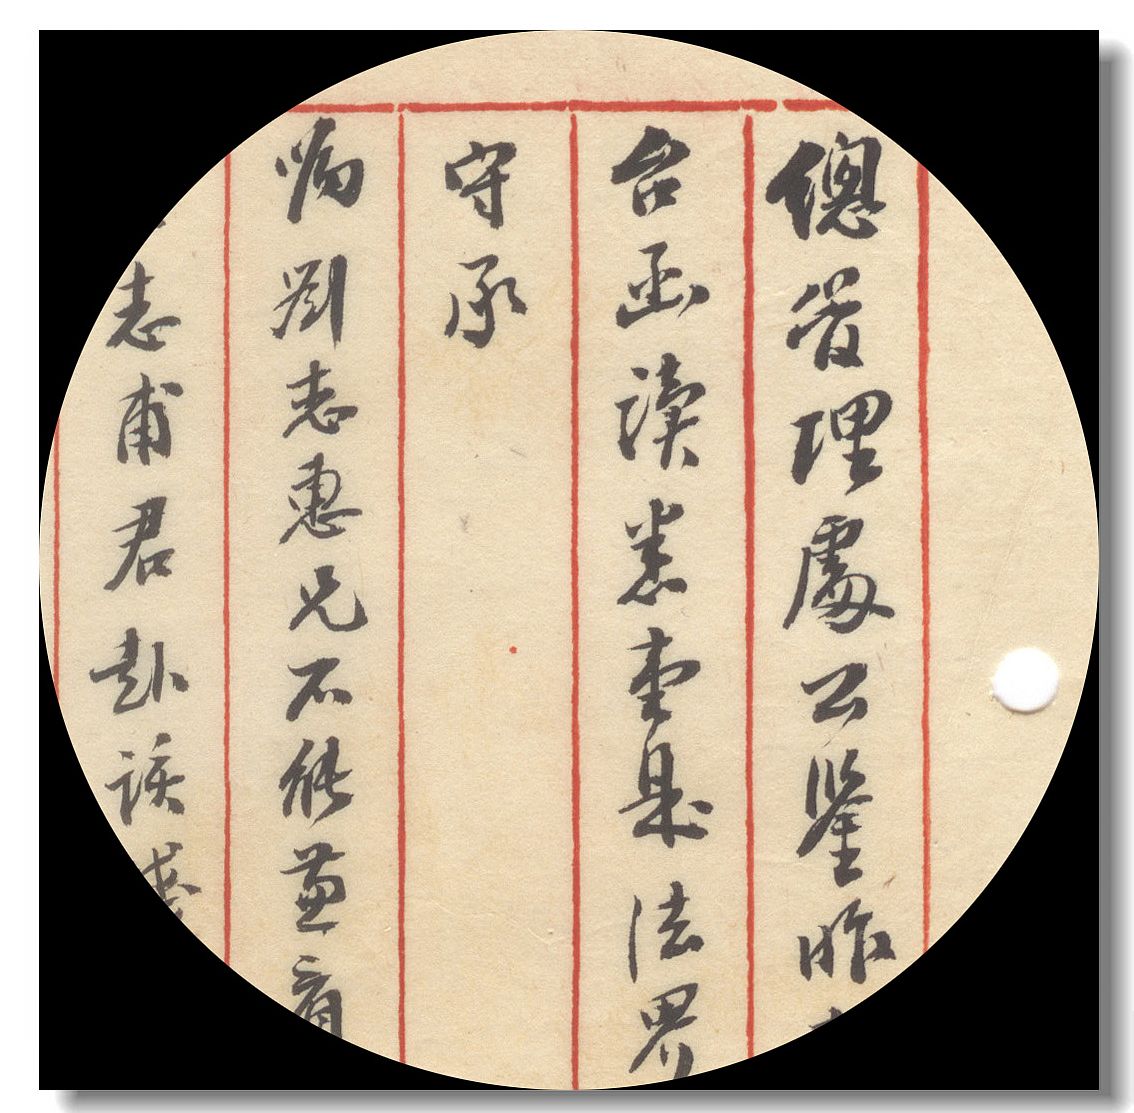 總管理處公鑒昨
台函讀悉壹是法界
守承
嘱劉志惠兄不能兼肩
志甫君赴該